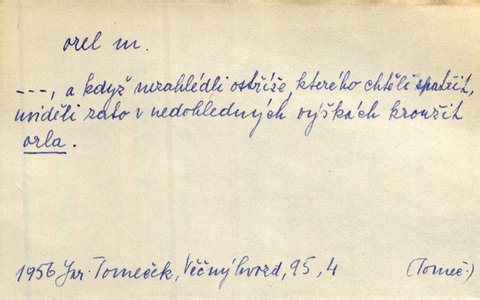 orel m.
---, a když nezahlédli ostříže, kterého chtěli spatřit,
uviděli zato v nedohledných výškách kroužit
orla.
1956 Jar. Tomeček, Věčný hvozd, 95, 4 (Tomeč.)